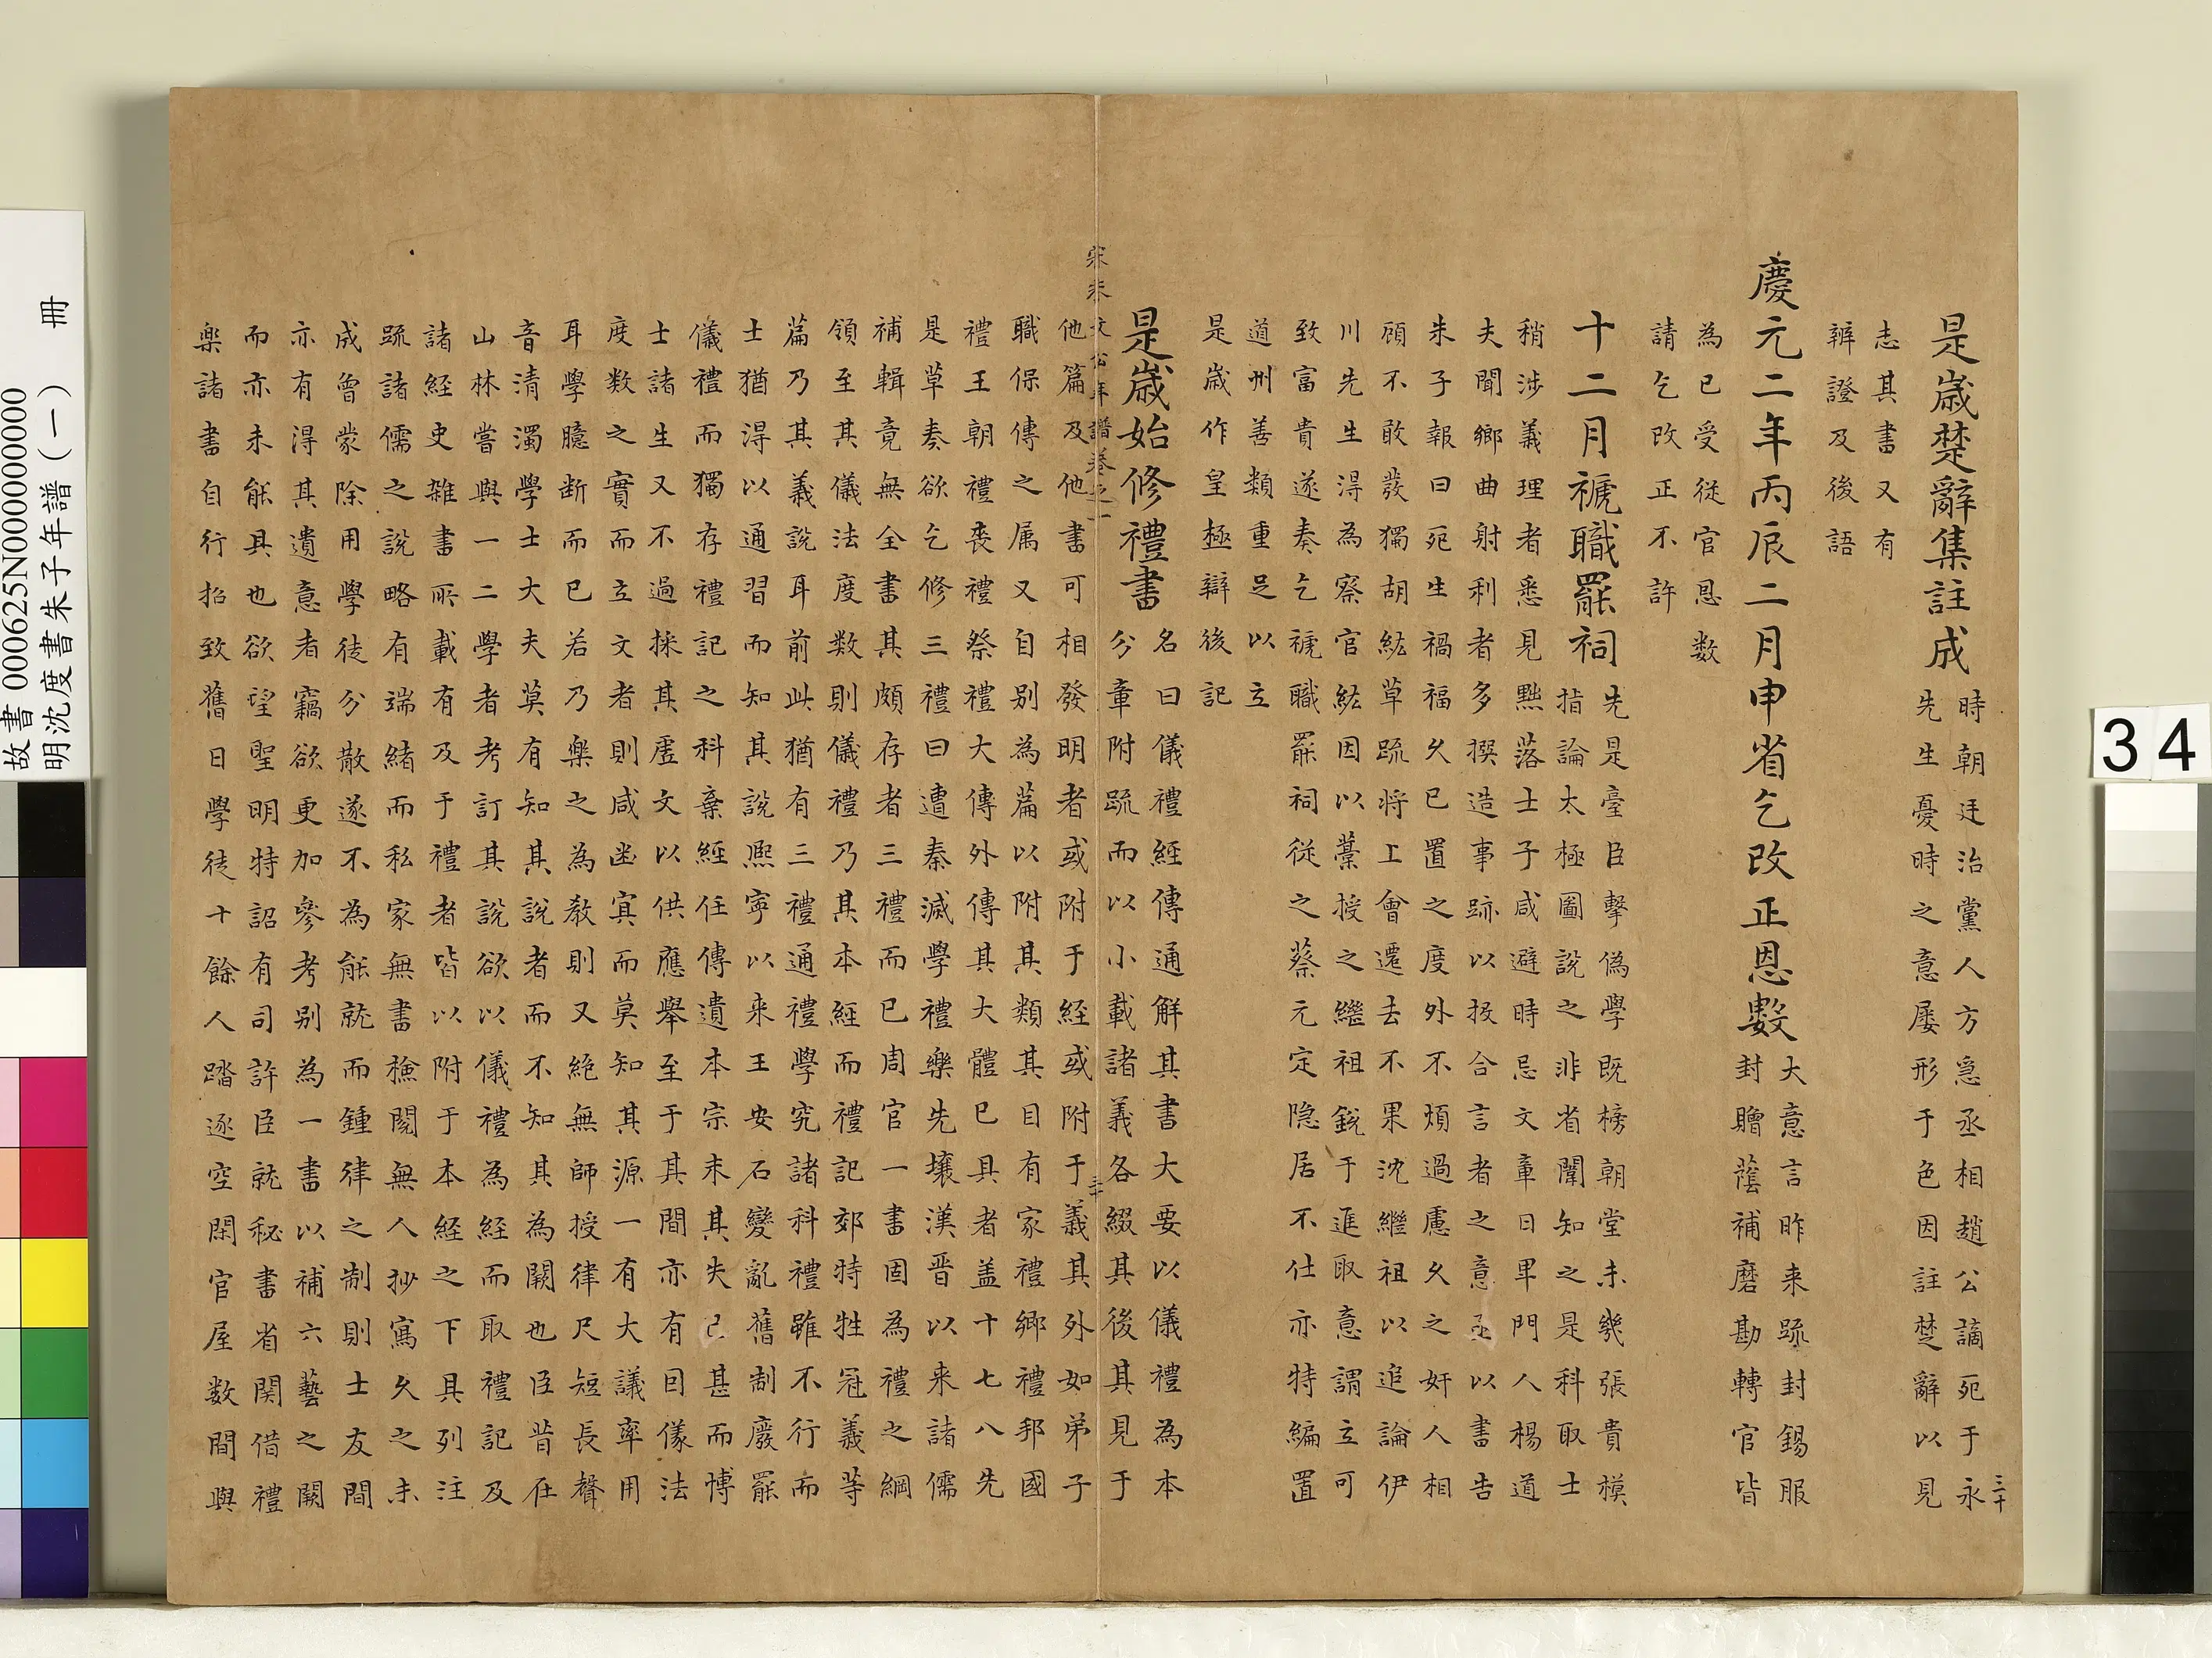 是歲楚辭集註成
時朝廷治黨人方急丞相趙公謫死于永
三十
先生憂時之意屢形于色因註楚辭以見
志其書又有
辨證及後語
慶元二年丙辰二月申省乞改正恩數
大意言昨来疏封錫服
封贈蔭補磨勘轉官皆
為已受従官恩数
請乞改正不許
十二月褫職罷祠
先是臺臣擊偽學既榜朝堂未幾張貴模
指論太極圖說之非省闈知之是科取士
稍涉義理者悉見黜落士子咸避時忌文章日卑門人楊道
夫聞鄉曲射利者多撰造事跡以投合言者之意亟以書告
朱子報曰死生禍福久已置之度外不煩過慮久之奸人相
顧不敢發獨胡紘草疏将上會遷去不果沈繼祖以追論伊
川先生得為察官紘因以藁授之繼祖銳于進取意謂立可
致富貴遂奏乞褫職罷祠従之蔡元定隐居不仕亦特編置
道州善類重足以立
是歲作皇極辯後記
是歲始修禮書
名曰儀禮經傳通解其書大要以儀禮為本
分章附疏而以小載諸義各綴其後其見于
宋朱文公年譜卷之一
他篇及他書可相發明者或附于経或附于義其外如弟子
職保傳之属又自别為篇以附其類其目有家禮鄉禮邦國
禮王朝禮喪禮祭禮大傳外傳其大體已具者盖十七八先
是草奏欲乞修三禮曰遭秦滅學禮樂先壞漢晋以来諸儒
補輯竟無全書其頗存者三禮而已周官一書固為禮之綱
領至其儀法度数則儀禮乃其本経而禮記郊特牲冠義等
篇乃其義說耳前此猶有三禮通禮學究諸科禮雖不行而
士猶得以通習而知其說熈寧以来王安石變亂舊制廢罷
儀禮而獨存禮記之科棄經任傳遺本宗末其失已甚而博
士諸生又不過採其虛文以供應舉至于其間亦有因儀法
度数之實而立文者則咸幽冥而莫知其源一有大議率用
耳學臆断而已若乃樂之為教則又絶無師授律尺短長聲
音清濁學士大夫莫有知其說者而不知其為闕也臣昔在
山林嘗與一二學者考訂其說欲以儀禮為経而取禮記及
諸経史雜書所載有及于禮者皆以附于本経之下具列注
疏諸儒之說略有端緒而私家無書檢閱無人抄寫久之未
成曾蒙除用學徒分散遂不為能就而鍾律之制則士友間
亦有得其遺意者竊欲更加參考别為一書以補六藝之闕
而亦未能具也欲望聖明特詔有司許臣就秘書省関借禮
楽諸書自行招致舊日學徒十餘人踏逐空閑官屋数間與
故書 000625N000000000
明沈度書朱子年譜(一) 冊
34